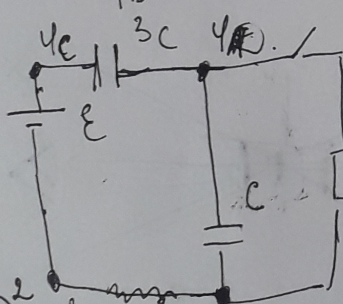 4ε 3C
ε
C
2